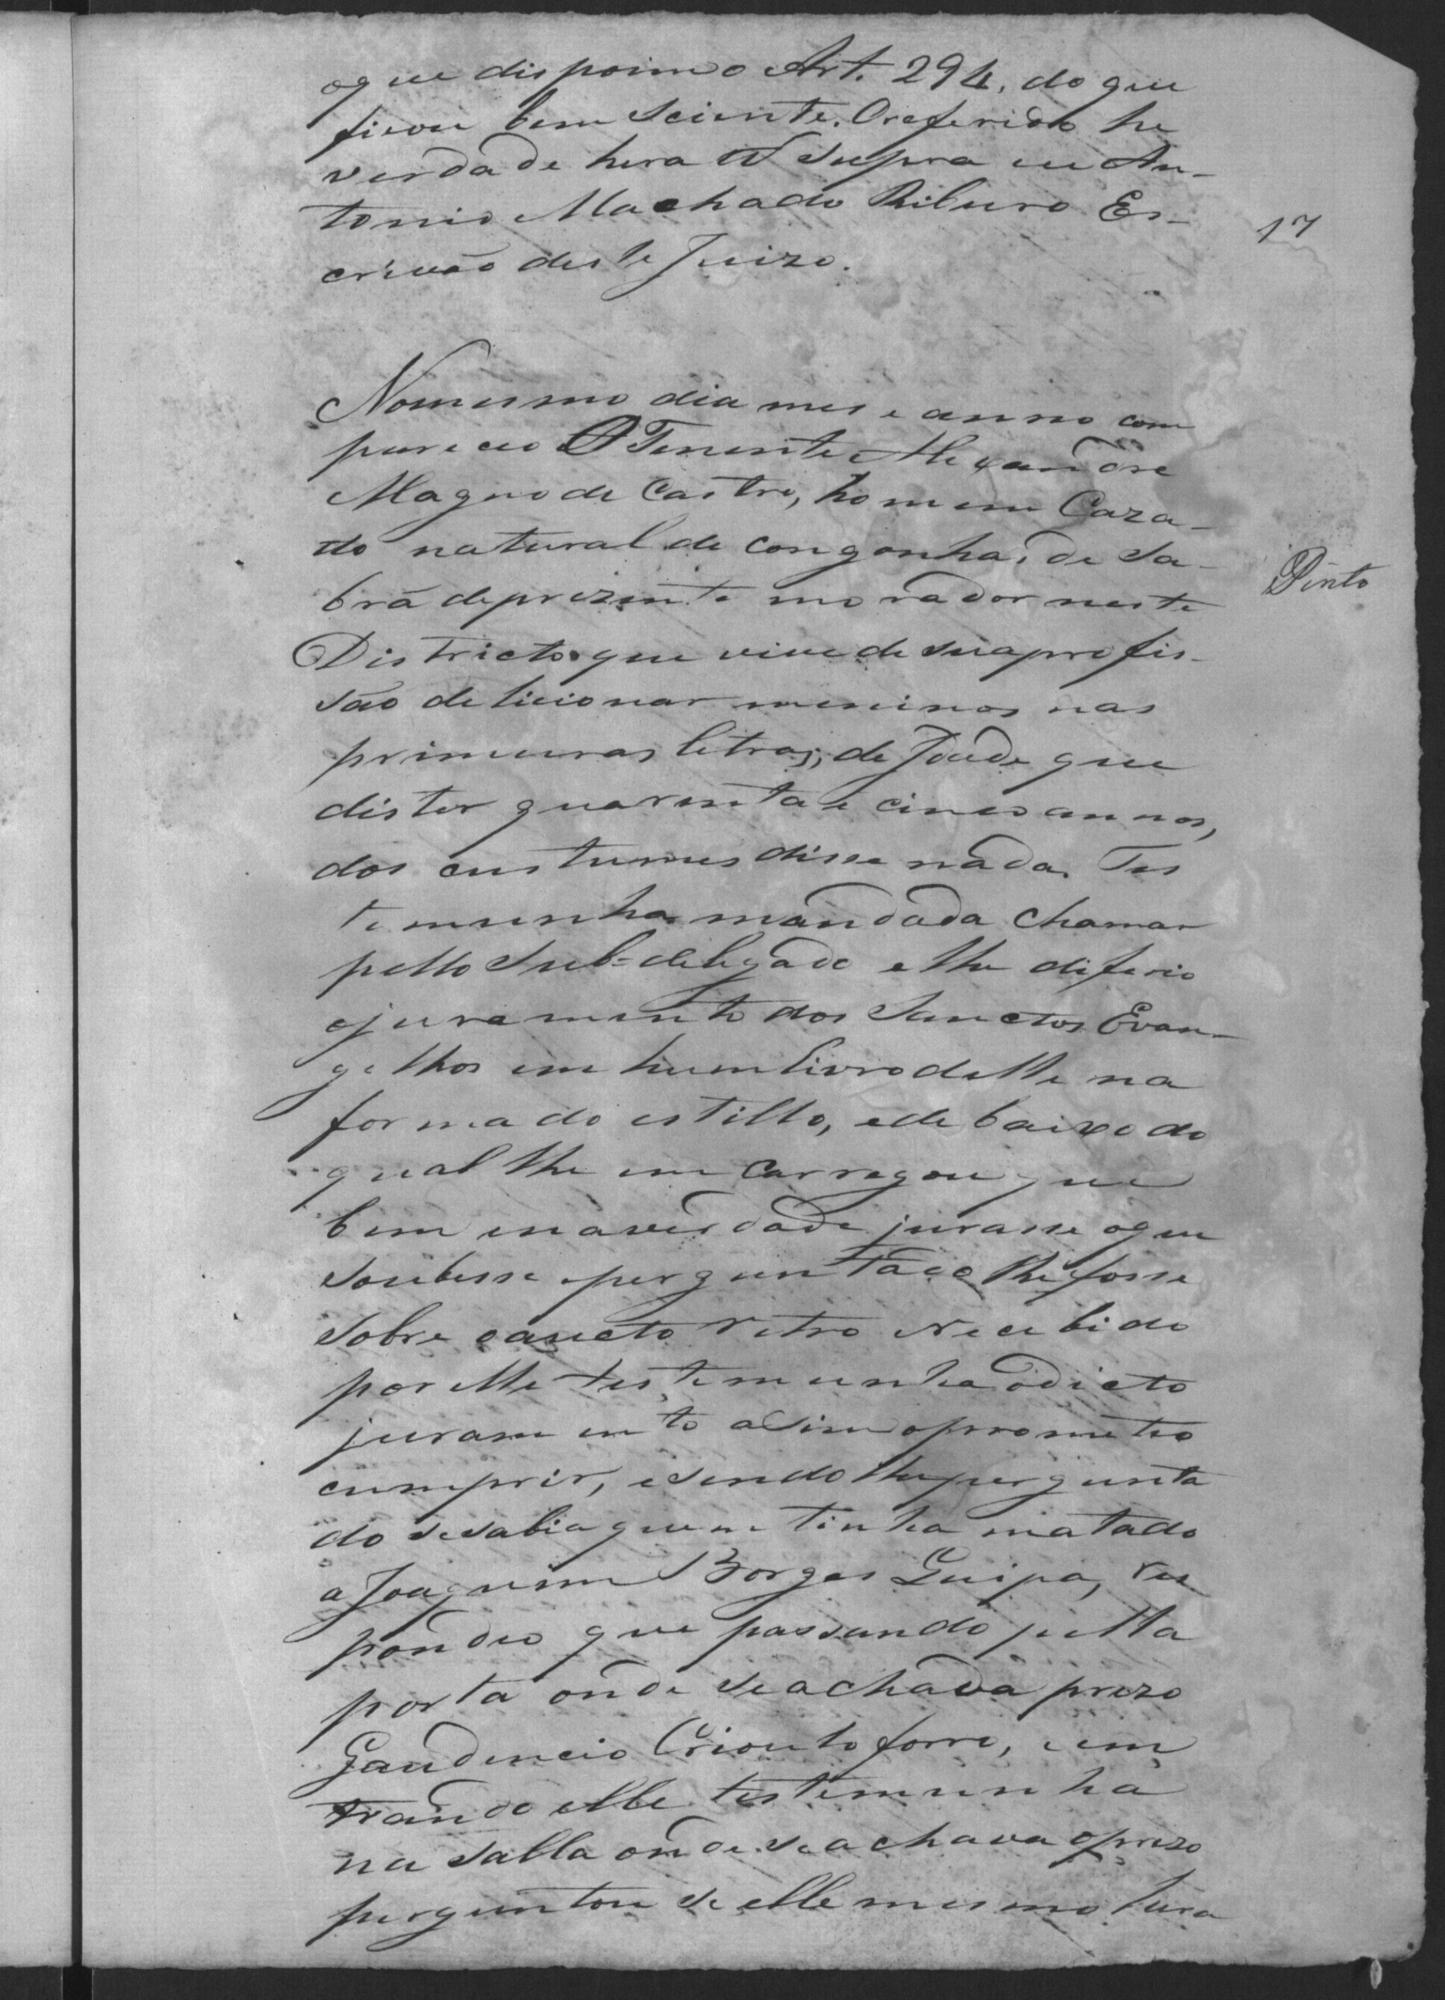 oque dispoim o Art. 294, do que
ficou bem Sciente. Oreferido he
verdade hera ut supra eu An-
tonio Machado Ribeiro Es-
crivão deste Juizo.
17
Nomesmo dia mes e anno com
pareceo O Tenente Alexandre
Magno de Castro, homem Caza-
do natural de congonhas de Sa-
brá deprezente morador neste
Pinto
Districto que vive de suaprofis-
são de licionar meninos nas
primeiras letras, de Idade que
dister quarenta e cinco annos,
dos custumes disse nada. Tes
temunha mandada chamar
pello Sub=delegado elhe diferio
ojuramento dos Sanctos Evan-
gelhos em hum livro delle na
forma do estillo, ede baixo do
qual lhe em carregou que
bem enaverdade jurasse oque
soubesse eperguntado lhe fosse
sobre oaucto retro e recebido
por elle testemunha odicto
juramento asim oprometeo
cumprir, esendo lhepergunta
do sesabia quem tinha matado
a Joaquim Borges Guipa, res
pondeo que passando pella
porta onde seachava prezo
Gaudencio Crioulo forro, eem
trando elle testemunha
na salla onde seachava oprezo
perguntou se elle mesmo hera